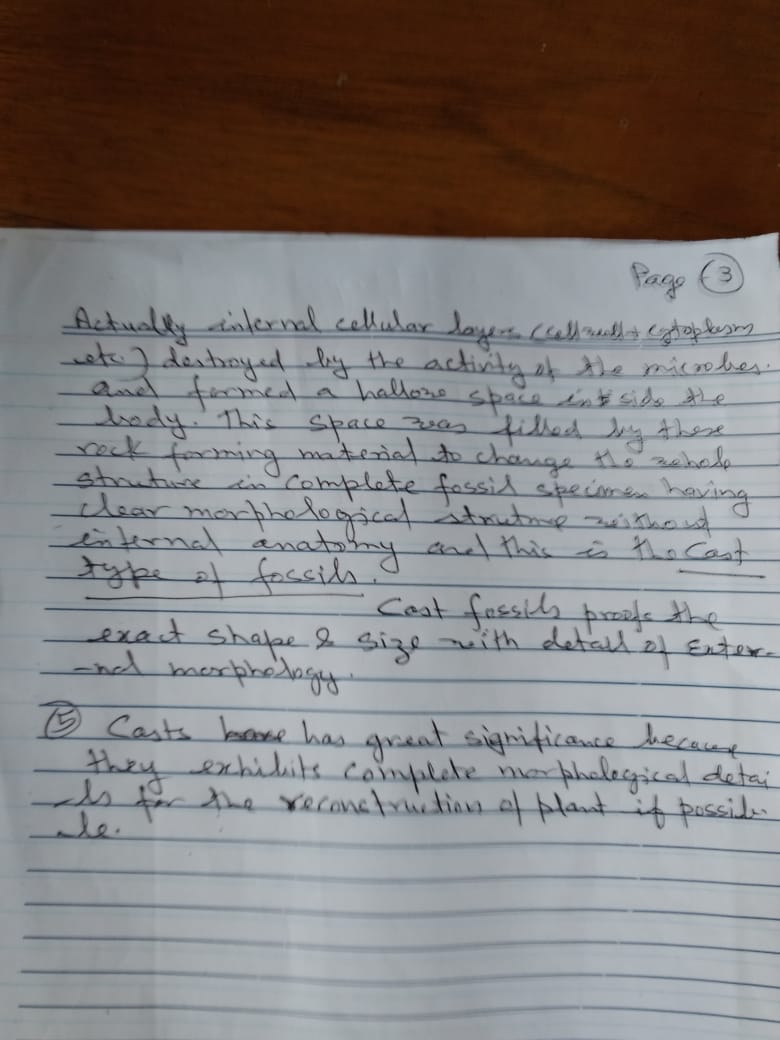 Page 3
Actually internal cellular layers (cell wall + cytoplasm
etc.) destroyed by the activity of the microbes.
and formed a hallow space inside the
body. This space was filled by these
rock forming material to change the whole
struture in complete fossil specimen having
clear morphological struture without
internal anatomy and this is the Cast
type of fossils.
Cast fossils proofs the
exact shape & size with detail of Exter-
-nal morphology.
5 Casts has great significance because
they exhibits complete morphological detai
-ls for the reconstruction of plant if possib-
-le.